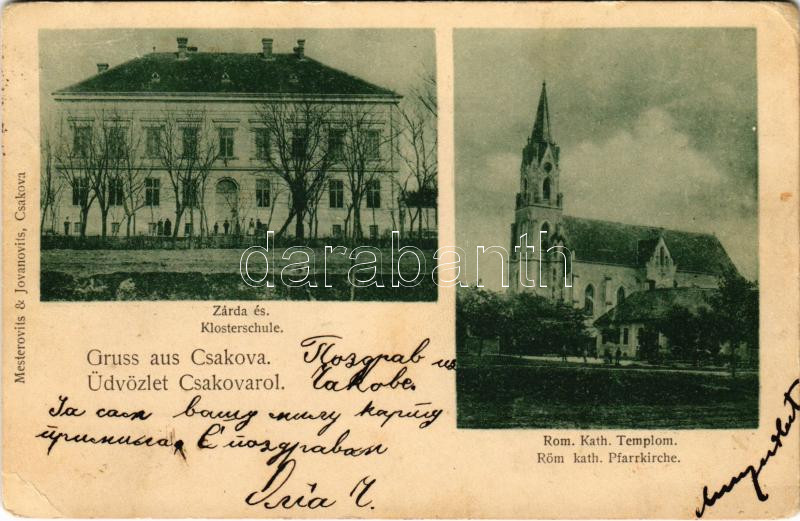 Mesterovits & Jovanovits, Csakova
darabanth
Zárda és.
Klosterschule.
Gruss aus Csakova.
Üdvözlet Csakovarol.
Поздрав из
Чакове.
Ја сам вашу милу карту
примила, С поздравом
Ч.
Rom. Kath. Templom.
Röm kath. Pfarrkirche.